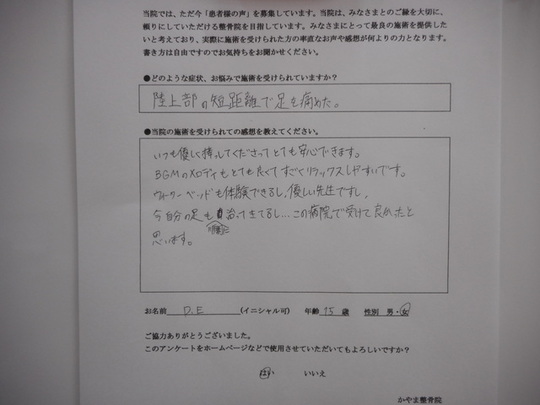 当院では、ただ今「患者様の声」を募集しています。当院は、みなさまとのご縁を大切に、
頼りにしていただける整骨院を目指しています。みなさまにとって最良の施術を提供した
いと考えており、実際に施術を受けられた方の率直なお声や感想が何よりの力となります。
書き方は自由ですのでお気持ちをお聞かせください。
●どのような症状、お悩みで施術を受けられていますか?
陸上部の短距離で足を痛めた。
●当院の施術を受けられての感想を教えてください。
いつも優しく接してくださってとても安心できます。
BGMのメロディもとても良くてすごくリラックスしやすいです。
ウォーターベッドも体験できるし、優しい先生ですし、
今自分の足も治ってきてるし…この病院で受けて良かったと
思います。
お名前 D.E (イニシャル可) 年齢 15 歳 性別 男・女
ご協力ありがとうございました。
このアンケートをホームページなどで使用させていただいてもよろしいですか?
はい いいえ
かやま整骨院